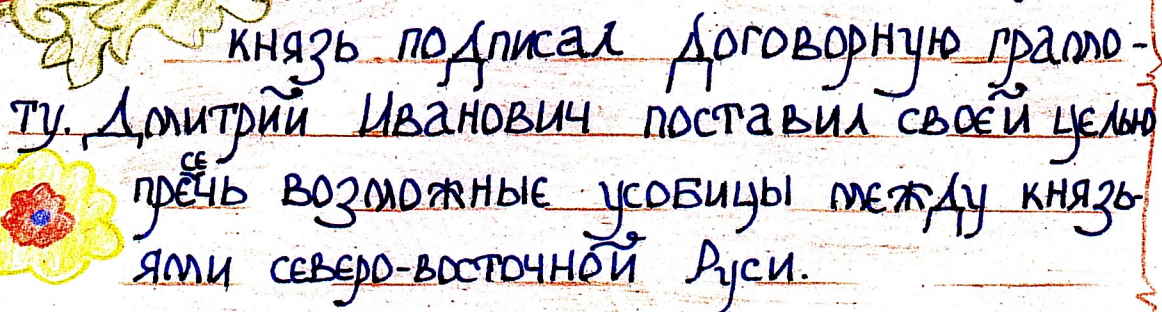 князь подписал договорную грамо-
ту. Дмитрий Иванович поставил своей целью
пресечь возможные усобицы между князь-
ями северо-восточной Руси.